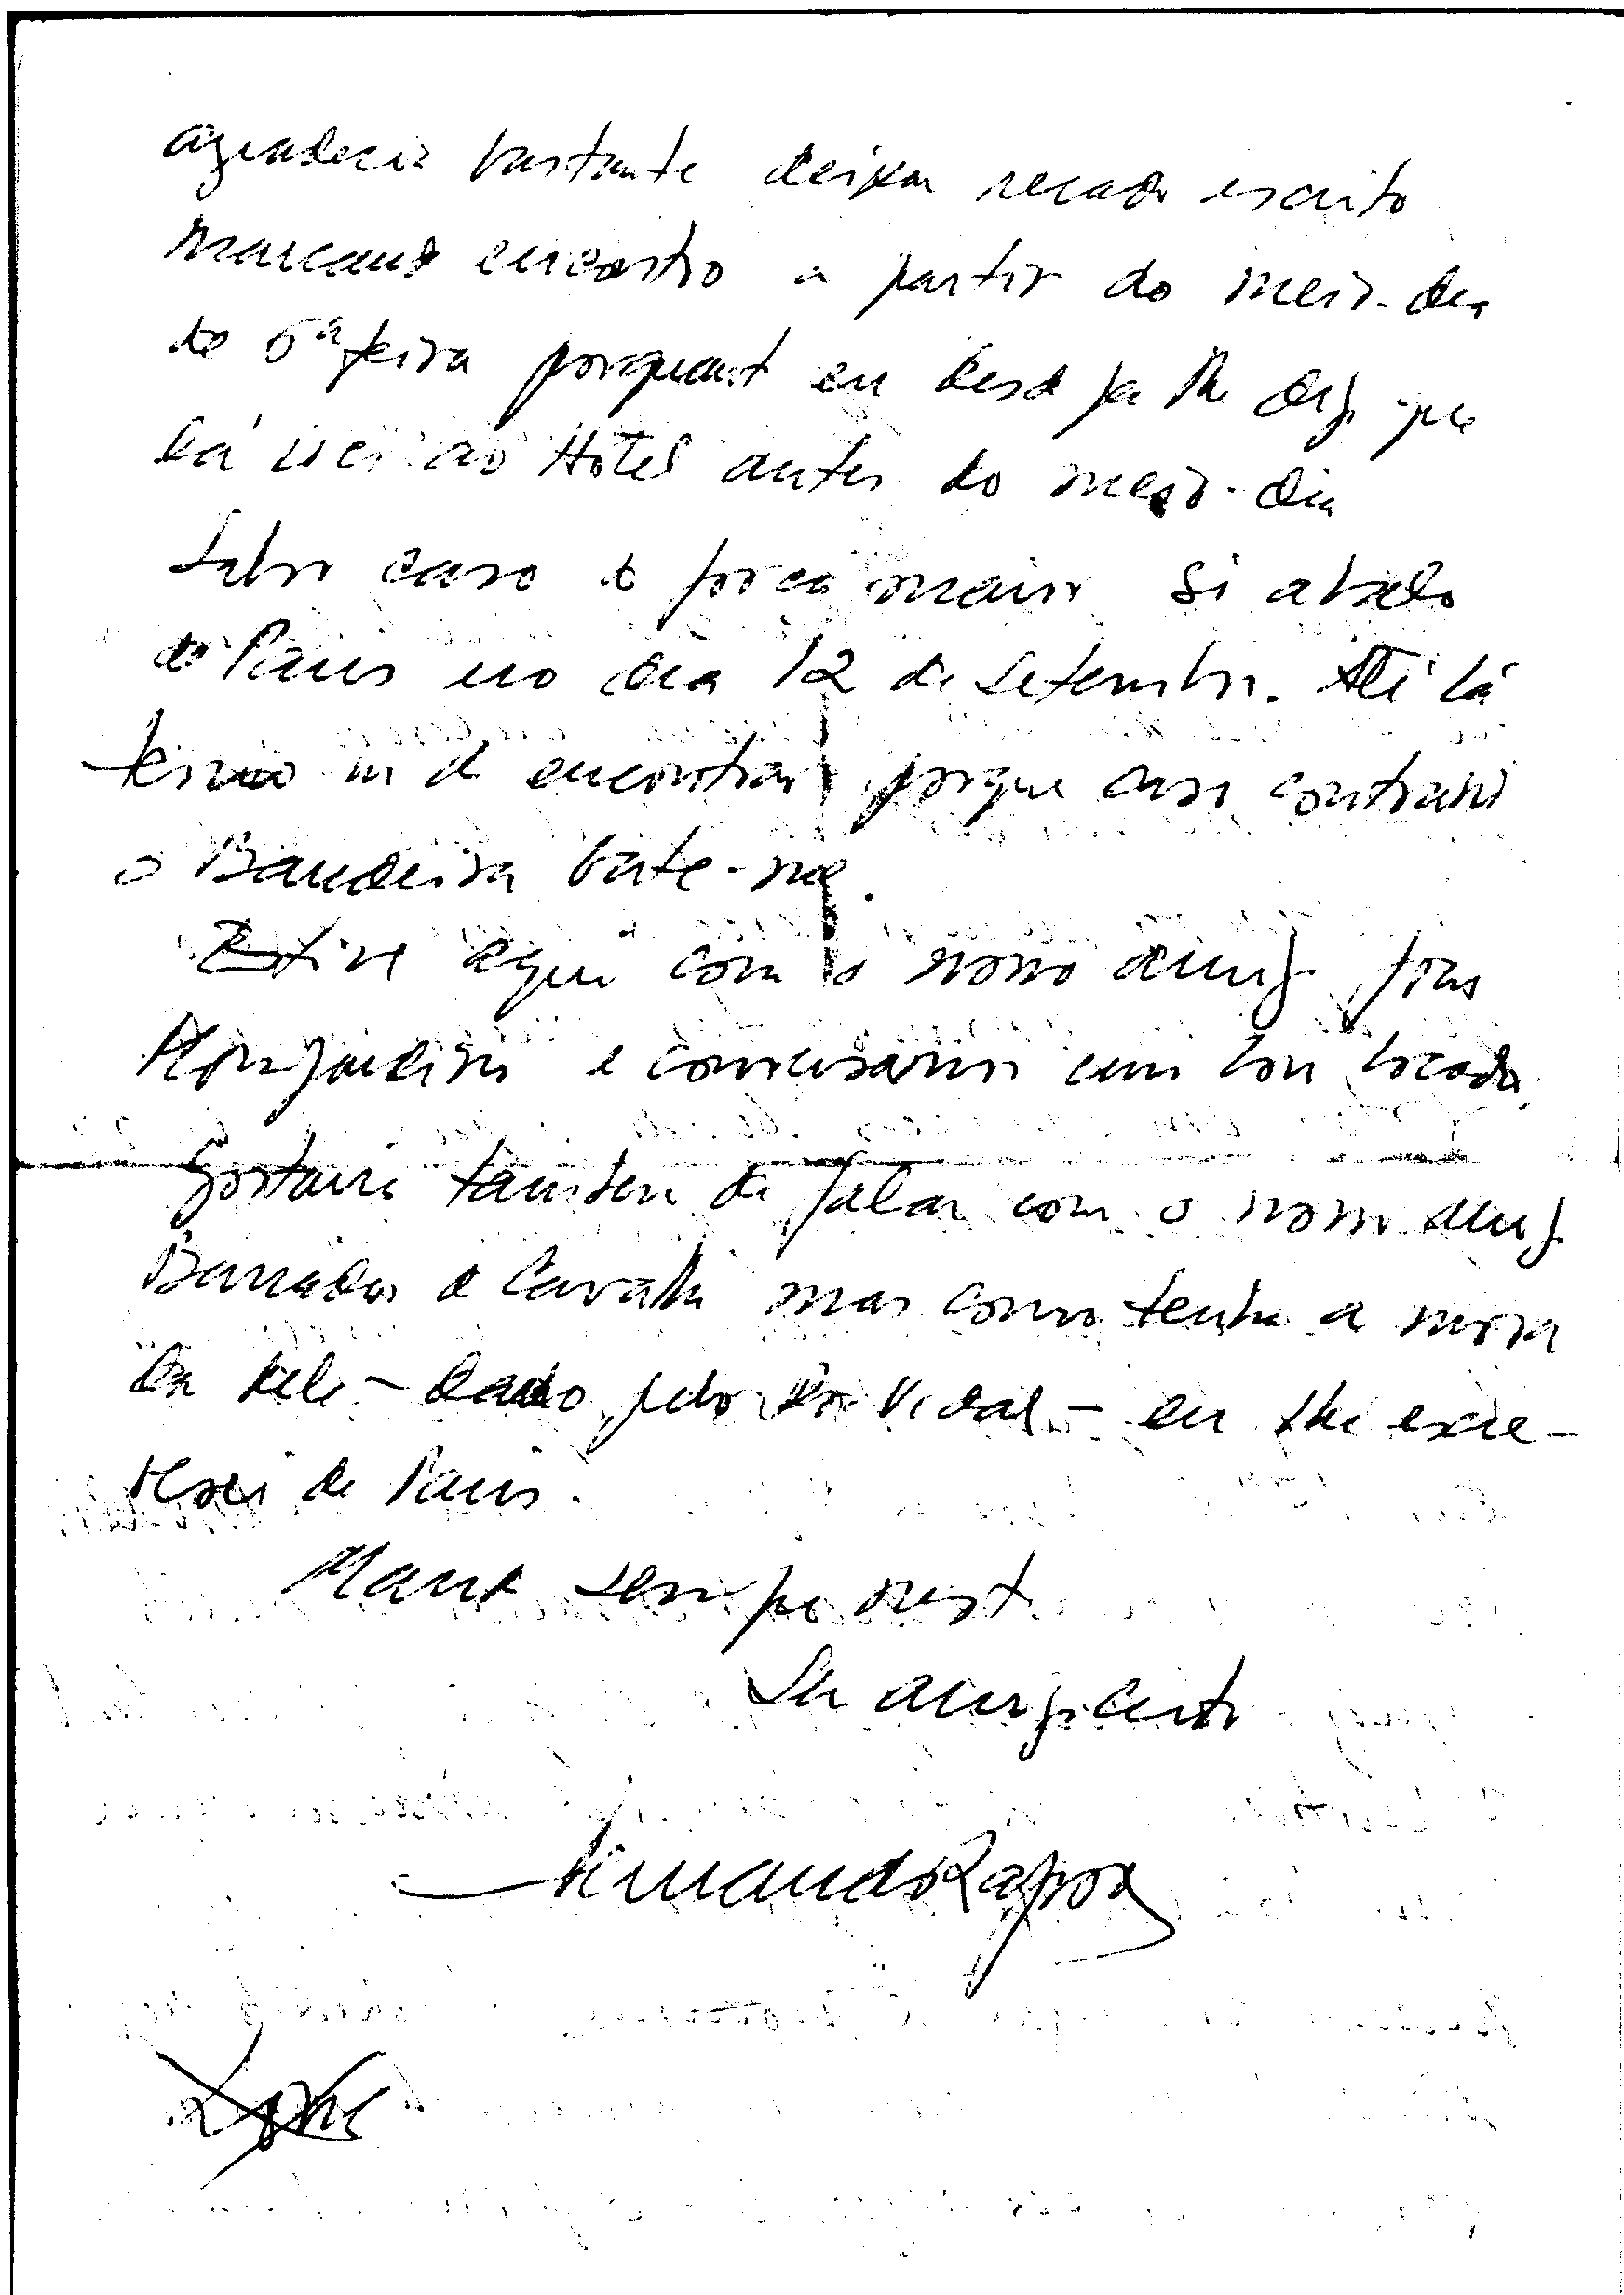 agradecia bastante deixar recado escrito
marcando encontro a partir do meio-dia
de 5ª feira porquanto eu desde já lhe digo que
lá irei ao Hotel antes do meio-dia
Salvo caso de força maior só abalo
de Paris no dia 12 de Setembro. Até lá
temos de encontrar porque caso contrario
o Bandeira bate-me.
Estive aqui com o nosso amigo
Monjardino e conversamos um bom bocado.
Gostaria tambem de falar com o nosso amigo
Barradas de Carvalho mas como tenho a morada
dele - dada pelo Dr. Vidal - eu lhe escre-
verei de Paris.
Mande sempre neste
Seu amigo certo